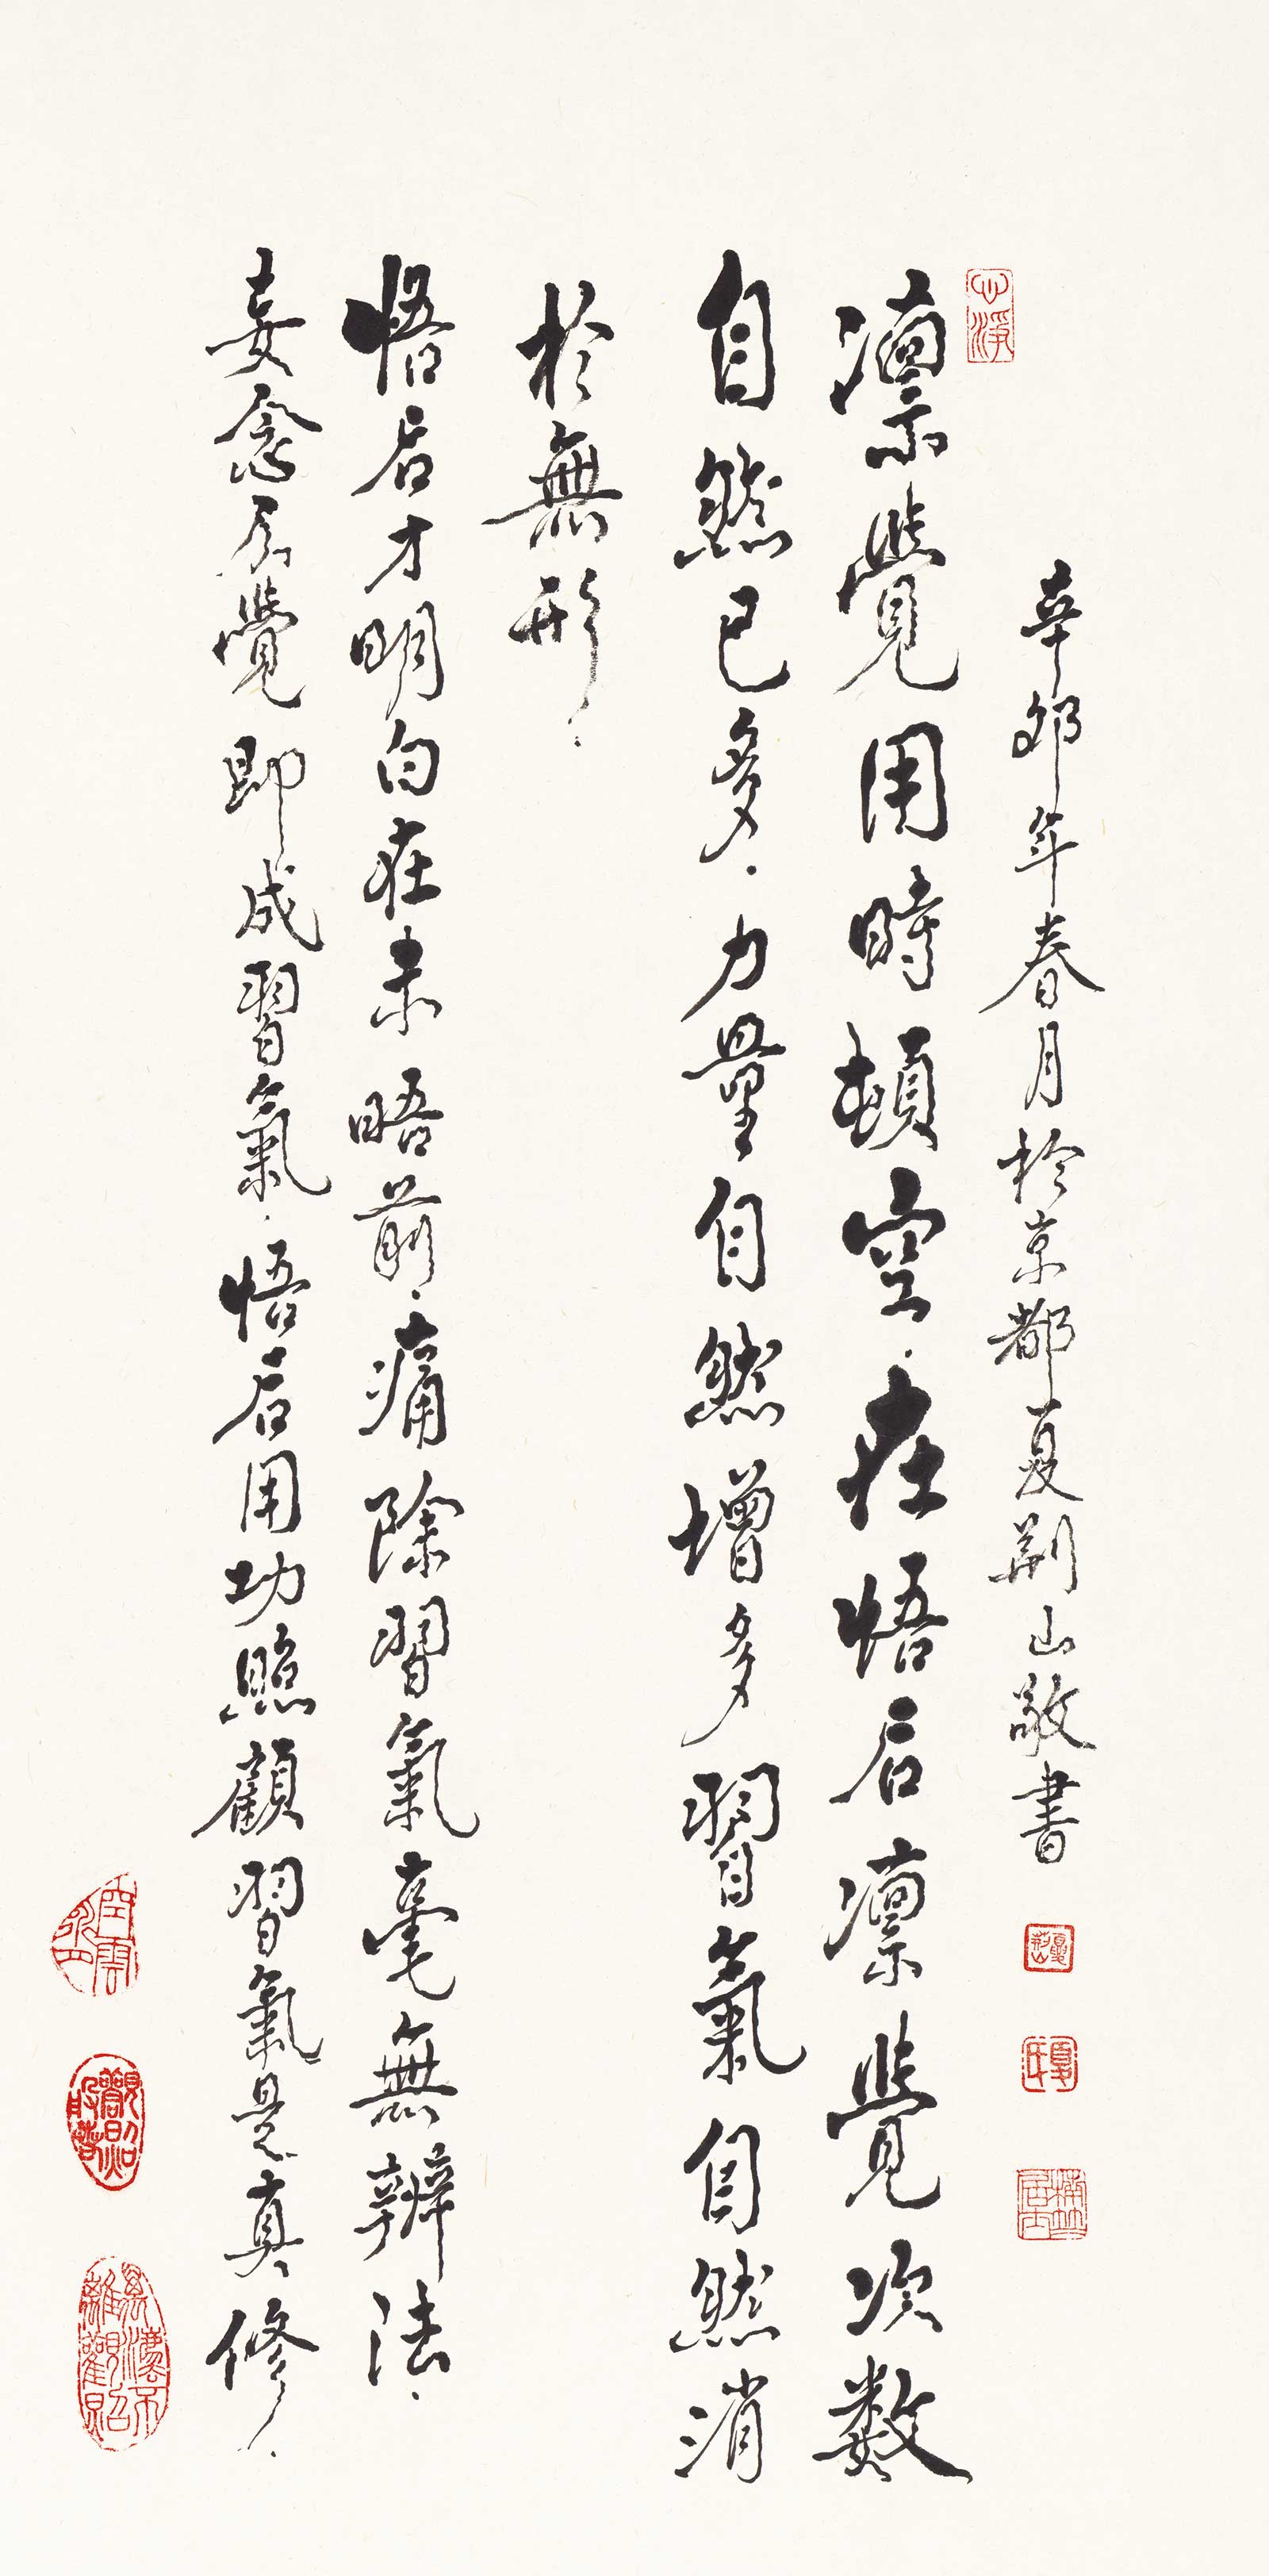 心淨
辛卯年春月於京都夏荆山敬書
凛覺用時頓空.在悟后凛覺次数
自然已多.力量自然增多習氣自然消
於無形.
悟后才明白在未晤前.痛除習氣毫無辦法.
妄念覺即成習氣.悟后用功照顧習氣是真修.
觀照般若